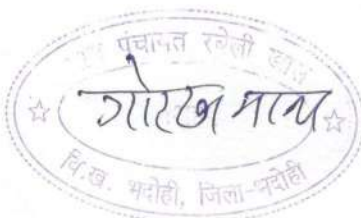 पंचायत रवेली
गोरखनाथ
वि.ख. भदोही, जिला-भदोही